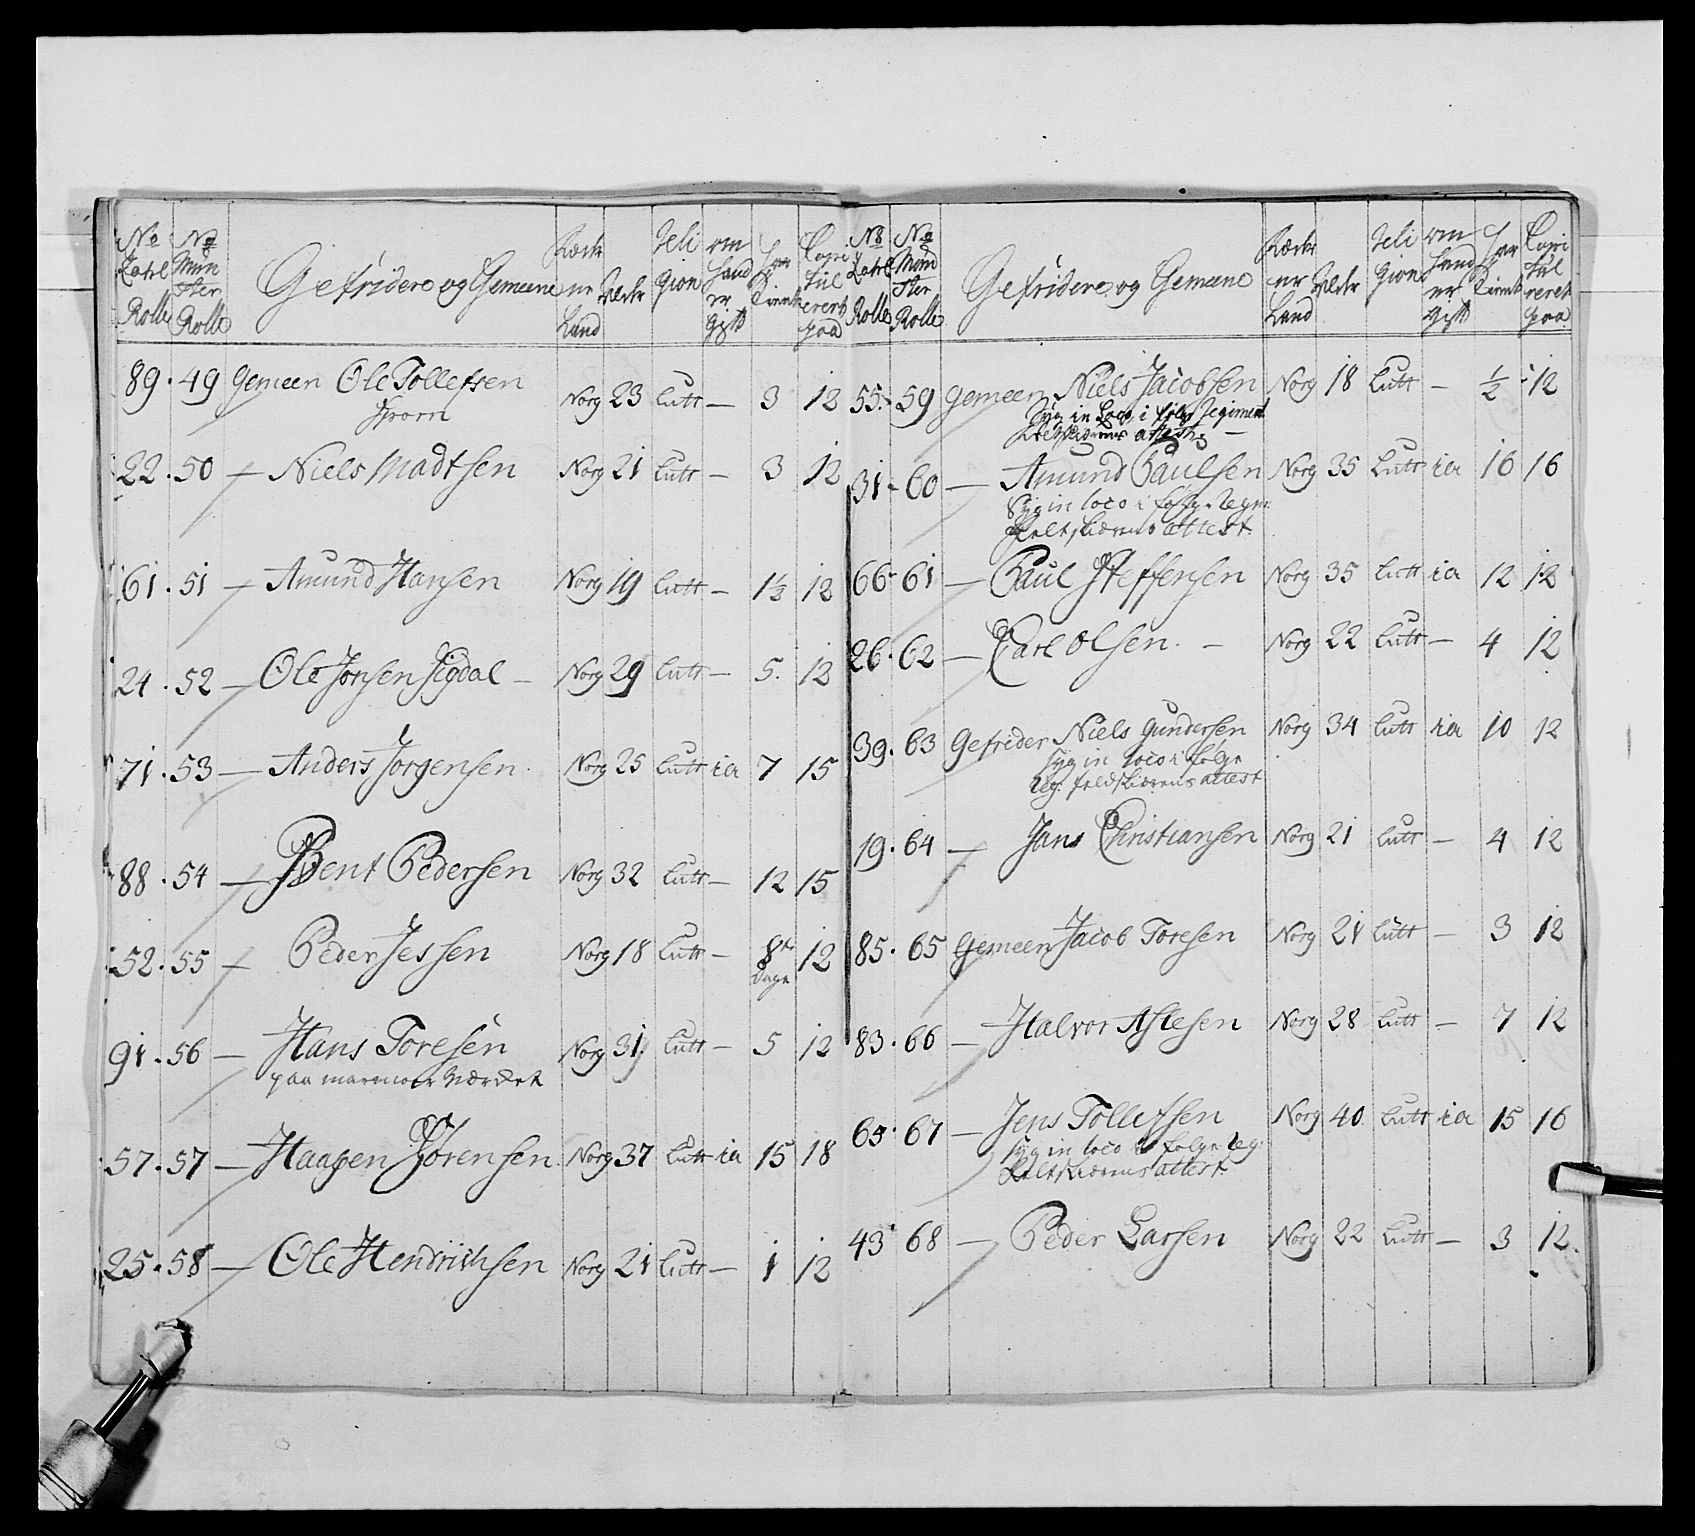 No Zahl Rolle | No Mun ster Rolle | Gefridere og Gemeene | Land | Alder | Reli gion | om hand er gift | har tient | Capi tul erert paa
89 . 49 Gemeen Ole Tollefsen Norg 23 Lutt — 3 12
22 . 50 — Niels Madtsen Norg 21 Lutt — 3 12
61 . 51 — Amund Hansen Norg 19 Lutt — 1½ 12
24 . 52 — Ole Jonsen Sigdal — Norg 29 Lutt — 5. 12
71 . 53 — Anders Jorgensen Norg 25 Lutt ia 7 15
88 . 54 — Bent Pedersen Norg 32 Lutt — 12 15
52 . 55 — Peder Jessen Norg 18 Lutt — 8te Dage 12
91 . 56 — Hans Toresen Norg 31 Lutt — 5 12
paa marmoer Værcket
57 . 57 — Haagen Sörensen Norg 37 Lutt ia 15 18
25 . 58 — Ole Hendrichsen Norg 21 Lutt — 1 12
No Zahl Rolle | No Mun ster Rolle | Gefridere og Gemeene | er Land | Alder | Reli gion | om hand er gift | har tient | Capi tul reret paa
55 . 59 Gemeen Niels Jacobsen Norg 18 Lutt — ½ 12
Syg in Loco i følge Regiment
feltskiærens attest
31 - 60 — Amund Paulsen Norg 35 Lutt ia 16 16
Syg in loco i følge Regm
feltskiærens attest
66 - 61 — Paul Steffensen Norg 35 Lutt ia 12 12
26 . 62 — Carl Olsen. — Norg 22 Lutt — 4 12
39 . 63 Gefrider Niels Gundersen Norg 34 Lutt ia 10 12
Syg in loco i følge
Reg: feldskiærens attest
19 . 64 — Hans Christiansen Norg 21 Lutt — 4 12
85 . 65 Gemeen Jacob Toresen Norg 21 Lutt — 3 12
83 . 66 — Halvor Aslesen Norg 28 Lutt — 7 12
65 . 67 — Jens Tollefsen Norg 40 Lutt ia 15 16
Syg in loco i følge Reg:
feltskiærens attest
43 . 68 — Peder Larsen Norg 22 Lutt — 3 12.